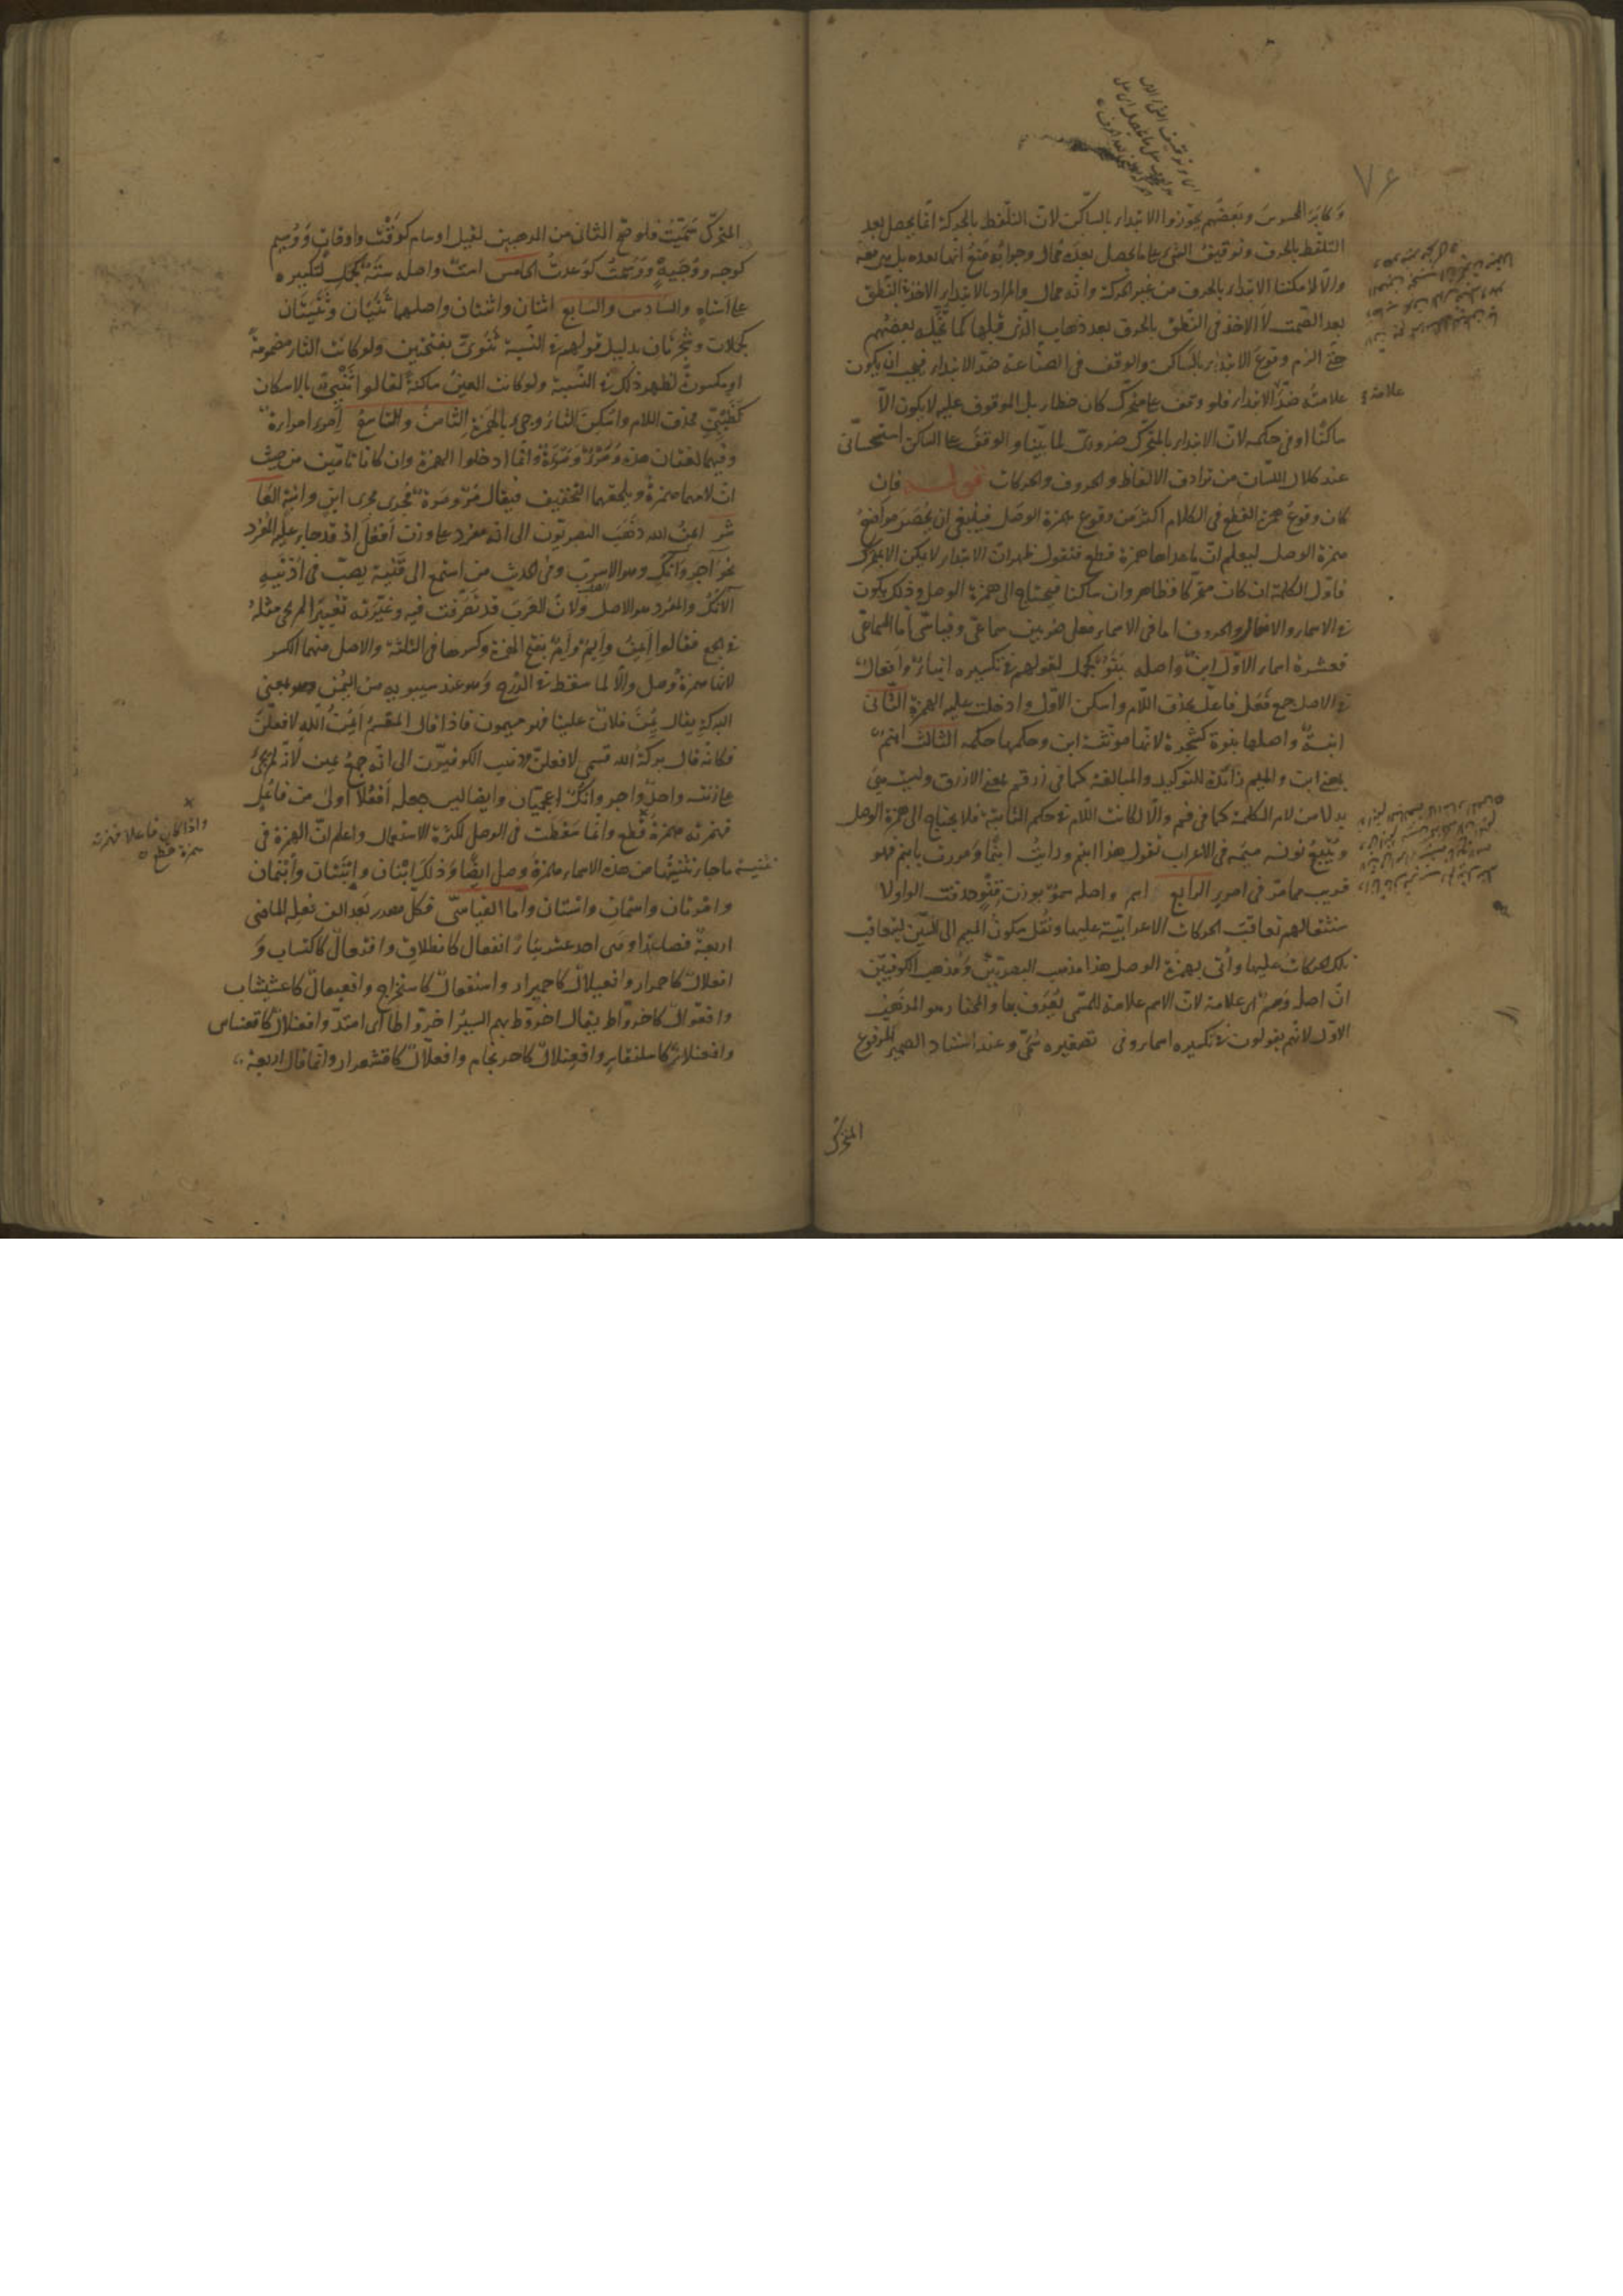 ٧٦
وكابر المحسوس وبعضهم يجوزوا الابتداء بالساكن لان التلفظ بالحركة انما يحصل بعد
التلفظ بالحرف وتوقيف الشئ على ما يحصل بعده محال وجوابه منع انها بعده بل هي معه
والا لامكننا الابتداء بالحرف من غير الحركة وانه محال والمراد بالابتداء الاخذ في النطق
بعد الصمت لا الاخذ في النطق بالحرف بعد ذهاب الذي قبلها كما تخيله بعضهم
حتى الزم وقوع الابتداء بالساكن والوقف في الصناعة ضد الابتداء فيجب ان يكون
علامته ضد الابتداء فلو وقف على متحرك كان خطاء بل الموقوف عليه لا يكون الا
علامة
ساكنا او في حكمه لان الابتداء بالمتحرك ضروري لما بينا والوقف على الساكن استحساني
عند كلال اللسان من ترادف الالفاظ والحروف والحركات فان
كان وقوع همزة القطع في الكلام اكثر من وقوع همزة الوصل فينبغي ان يحصر مواضع
همزة الوصل ليعلم ان ما عداها همزة قطع فنقول ظهر ان الابتداء لا يمكن الا بمتحرك
فاول الكلمة ان كان متحركا فظاهر وان ساكنا فيحتاج الى همزة الوصل وذلك يكون
في الاسماء والافعال والحروف اما في الاسماء فعلى ضربين سماعي وقياسي اما السماعي
فعشرة اسماء الاول ابن واصله بنو كجمل لقولهم في تكسيره ابناء وافعال
في الاصل جمع فعل فاعل بحذف اللام واسكن الاول وادخلت عليه الهمزة الثاني
ابنة واصلها بنوة كشجرة لانها مؤنثة ابن وحكمها حكمه الثالث ابنم
بمعنى ابن والميم زائدة للتوكيد والمبالغة كما في زرقم بمعنى الازرق وليست ميمه
بدلا من لام الكلمة كما في فم والا لكانت اللام في حكم الثابتة فلا يحتاج الى همزة الوصل
ويتبع نونه ميمه في الاعراب نقول هذا ابنم ورايت ابنما ومررت بابنم فهو
قريب مما مر في امرء الرابع اسم واصله سمو بوزن قنو حذفت الواو لا
ستثقالهم تعاقب الحركات الاعرابية عليها ونقل سكون الميم الى السين ليتعاقب
تلك الحركات عليها واتى بهمزة الوصل هذا مذهب البصريين ومذهب الكوفيين
ان اصله وسم اي علامة لان الاسم علامة للمسمى يعرف بها والمختار هو المذهب
الاول لانهم يقولون في تكسيره اسماء وفي تصغيره سمي وعند اسناد الضمير المرفوع
المتحرك
المتحرك سميت فلو صح الثاني من المذهبين لقيل اوسام كوقت واوقات ووسيم
كوجه ووجيه ووسمت كوعدت الخامس است واصله سته كجمل لتكسيره
على استاه والسادس والسابع اثنان واثنتان واصلهما ثنيان وثنيتان
كجملان وشجرتان بدليل قولهم في النسبة ثنوي بفتحتين ولو كانت الثاء مضمومة
او مكسورة لظهر ذلك في النسبة ولو كانت العين ساكنة لقالوا ثنيي بالاسكان
كظبيي بحذف اللام واسكن الثاء وجيء بالهمزة الثامن والتاسع امرء امراة
وفيهما لغتان هذه ومرء ومرءة وانما ادخلوا الهمزة وان كانا تامين من حيث
ان لامهما همزة ويلحقهما التخفيف فيقال مر ومرة مجرى مجرى ابن وابنة العا
شر ايمن الله ذهب البصريون الى انه مفرد على وزن افعل اذ قد جاء عليه المفرد
نحو آجر وآنك وهو الاسرب وفي الحديث من استمع الى قينة يصب في اذنيه
الآنك والمفرد هو الاصل ولان العرب قد تصرفت فيه وغيرته تغييرا لم يجئ مثله
في الجمع فقالوا ايمن وايم وام بفتح الهمزة وكسرها في الثلثة والاصل منهما الكسر
لانها همزة وصل والا لما سقطت في الدرج وهو عند سيبويه من اليمن وهو بمعنى
البركة يقال يمن فلان علينا فهو ميمون فاذا قال المقسم ايمن الله لافعلن
فكانه قال بركة الله قسمي لافعلن وذهب الكوفيون الى انه جمع يمين لانه لم يجئ
على زنته واحد وآجر وآنك اعجميان وايضا ليس جعله افعلا اولى من فاعل
فهمزته همزة قطع وانما سقطت في الوصل لكثرة الاستعمال واعلم ان الهمزة في
واذا كان فاعلا فهمزته
همزة قطع
تثنية ما جاء تثنيتها من هذه الاسماء همزة وصل ايضا وذلك ابنان وابنتان وابنمان
وامرءان واسمان واستان واما القياسي فكل مصدر بعد الف فعله الماضي
اربعة فصاعدا وهي احد عشر بناء انفعال كانطلاق وافتعال كاكتساب و
افعلال كاحمرار وافعيلال كاحميرار واستفعال كاستخراج وافعيعال كاعشيشاب
وافعوال كاخرواط يقال اخروط بهم السير اخرواطا اي امتد وافعنلال كاقعنساس
وافعنلاء كاسلنقاء وافعنلال كاحرنجام وافعلال كاقشعرار وانما قال اربعة